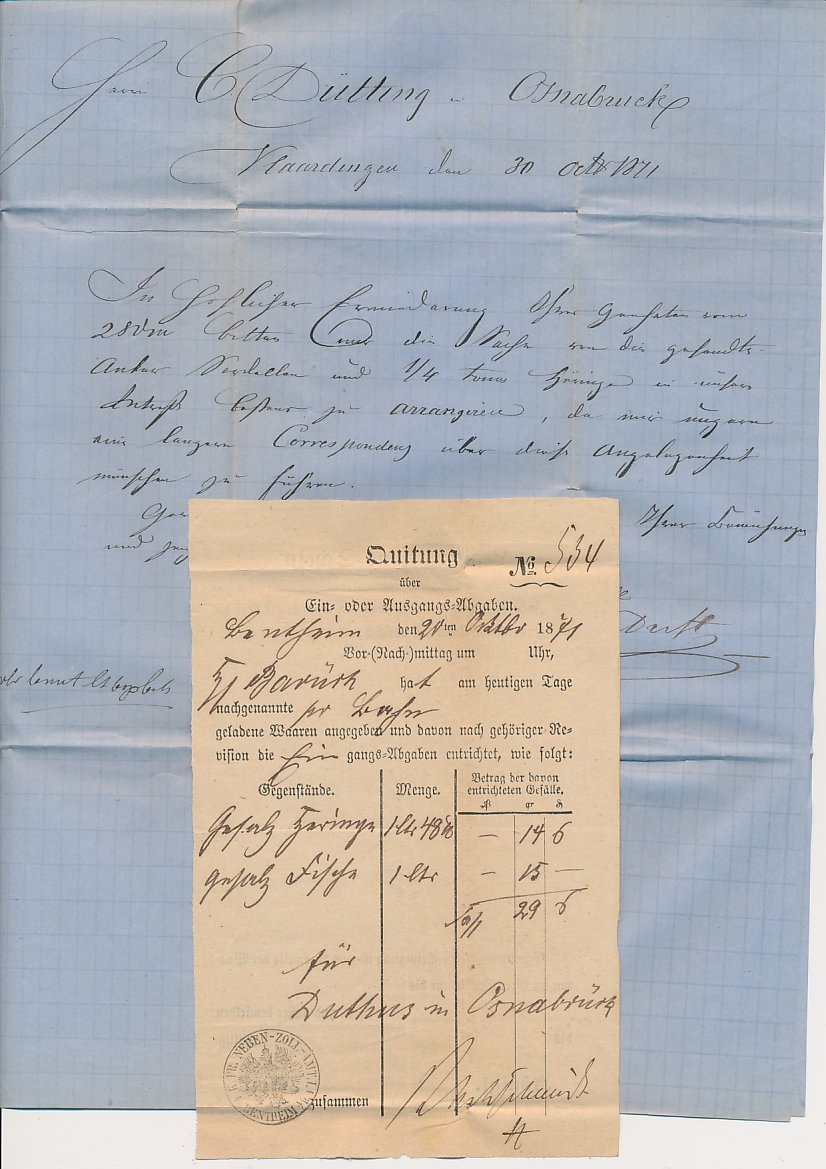 Herrn C Dütting in Osnabrück
Vlaardingen den 30 Octb 1871
In höflicher Erwiederung Ihres Geehrten vom
28ten bitten wir die Sache von die gesandte
Anker Sardellen und 1/4 tonne Häringe in unser
Intresse bestens zu arrangiren, da wir ungern
eine langere Correspondenz über diese Angelegenheit
wünschen zu führen.
Ihrer Bemühungen
und
Quitung
No. 534
über
Ein- oder Ausgangs-Abgaben.
Bentheim den 20ten Oktbr 1871
Vor-(Nach-)mittag um Uhr,
hat am heutigen Tage
nachgenannte pr Bahn
geladene Waaren angegeben und davon nach gehöriger Re-
vision die Ein gangs-Abgaben entrichtet, wie folgt:
Gegenstände. Menge. Betrag der davon
entrichteten Gefälle.
gr
Gesalz Heringe 1 Ctr 48 — 14 6
gesalz Fische 1 Ctr — 15 —
29 6
für
in Osnabrück
K. PR. NEBEN-ZOLL-AMT I
BENTHEIM
zusammen